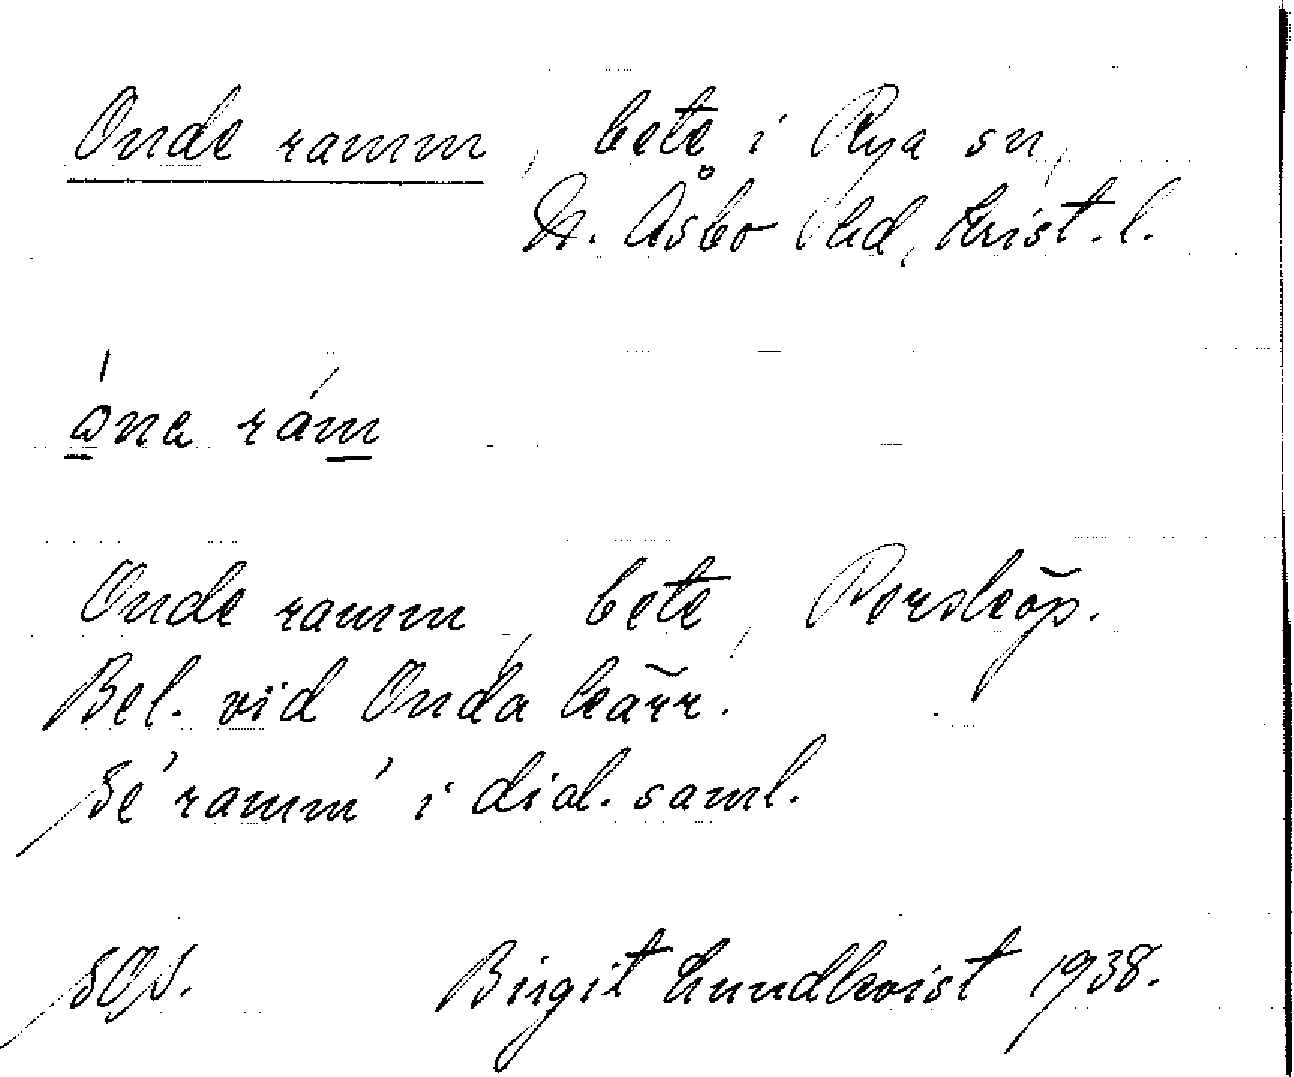 Onde ramm, bete i Rya sn,
N. Åsbo hd, Krist. l.
ɷ́na rám
Onde ramm, bete, Porsköp.
Bel. vid Onda kärr.
Se 'ramm' i dial. saml.
SOS. Birgit Lundkvist 1938.